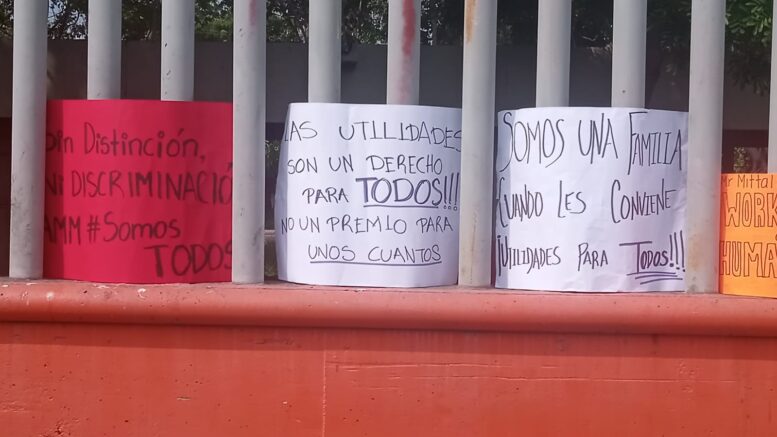 Sin Distinción,
Ni DISCRIMINACIÓ
AMM#Somos
TODOS
LAS UTILIDADES
SON UN DERECHO
PARA TODOS!!!
NO UN PREMIO PARA
UNOS CUANTOS
SOMOS UNA FAMILIA
CUANDO LES CONVIENE
UTILIDADES PARA TODOS!!!
Mr Mittal
WORK
HUMA